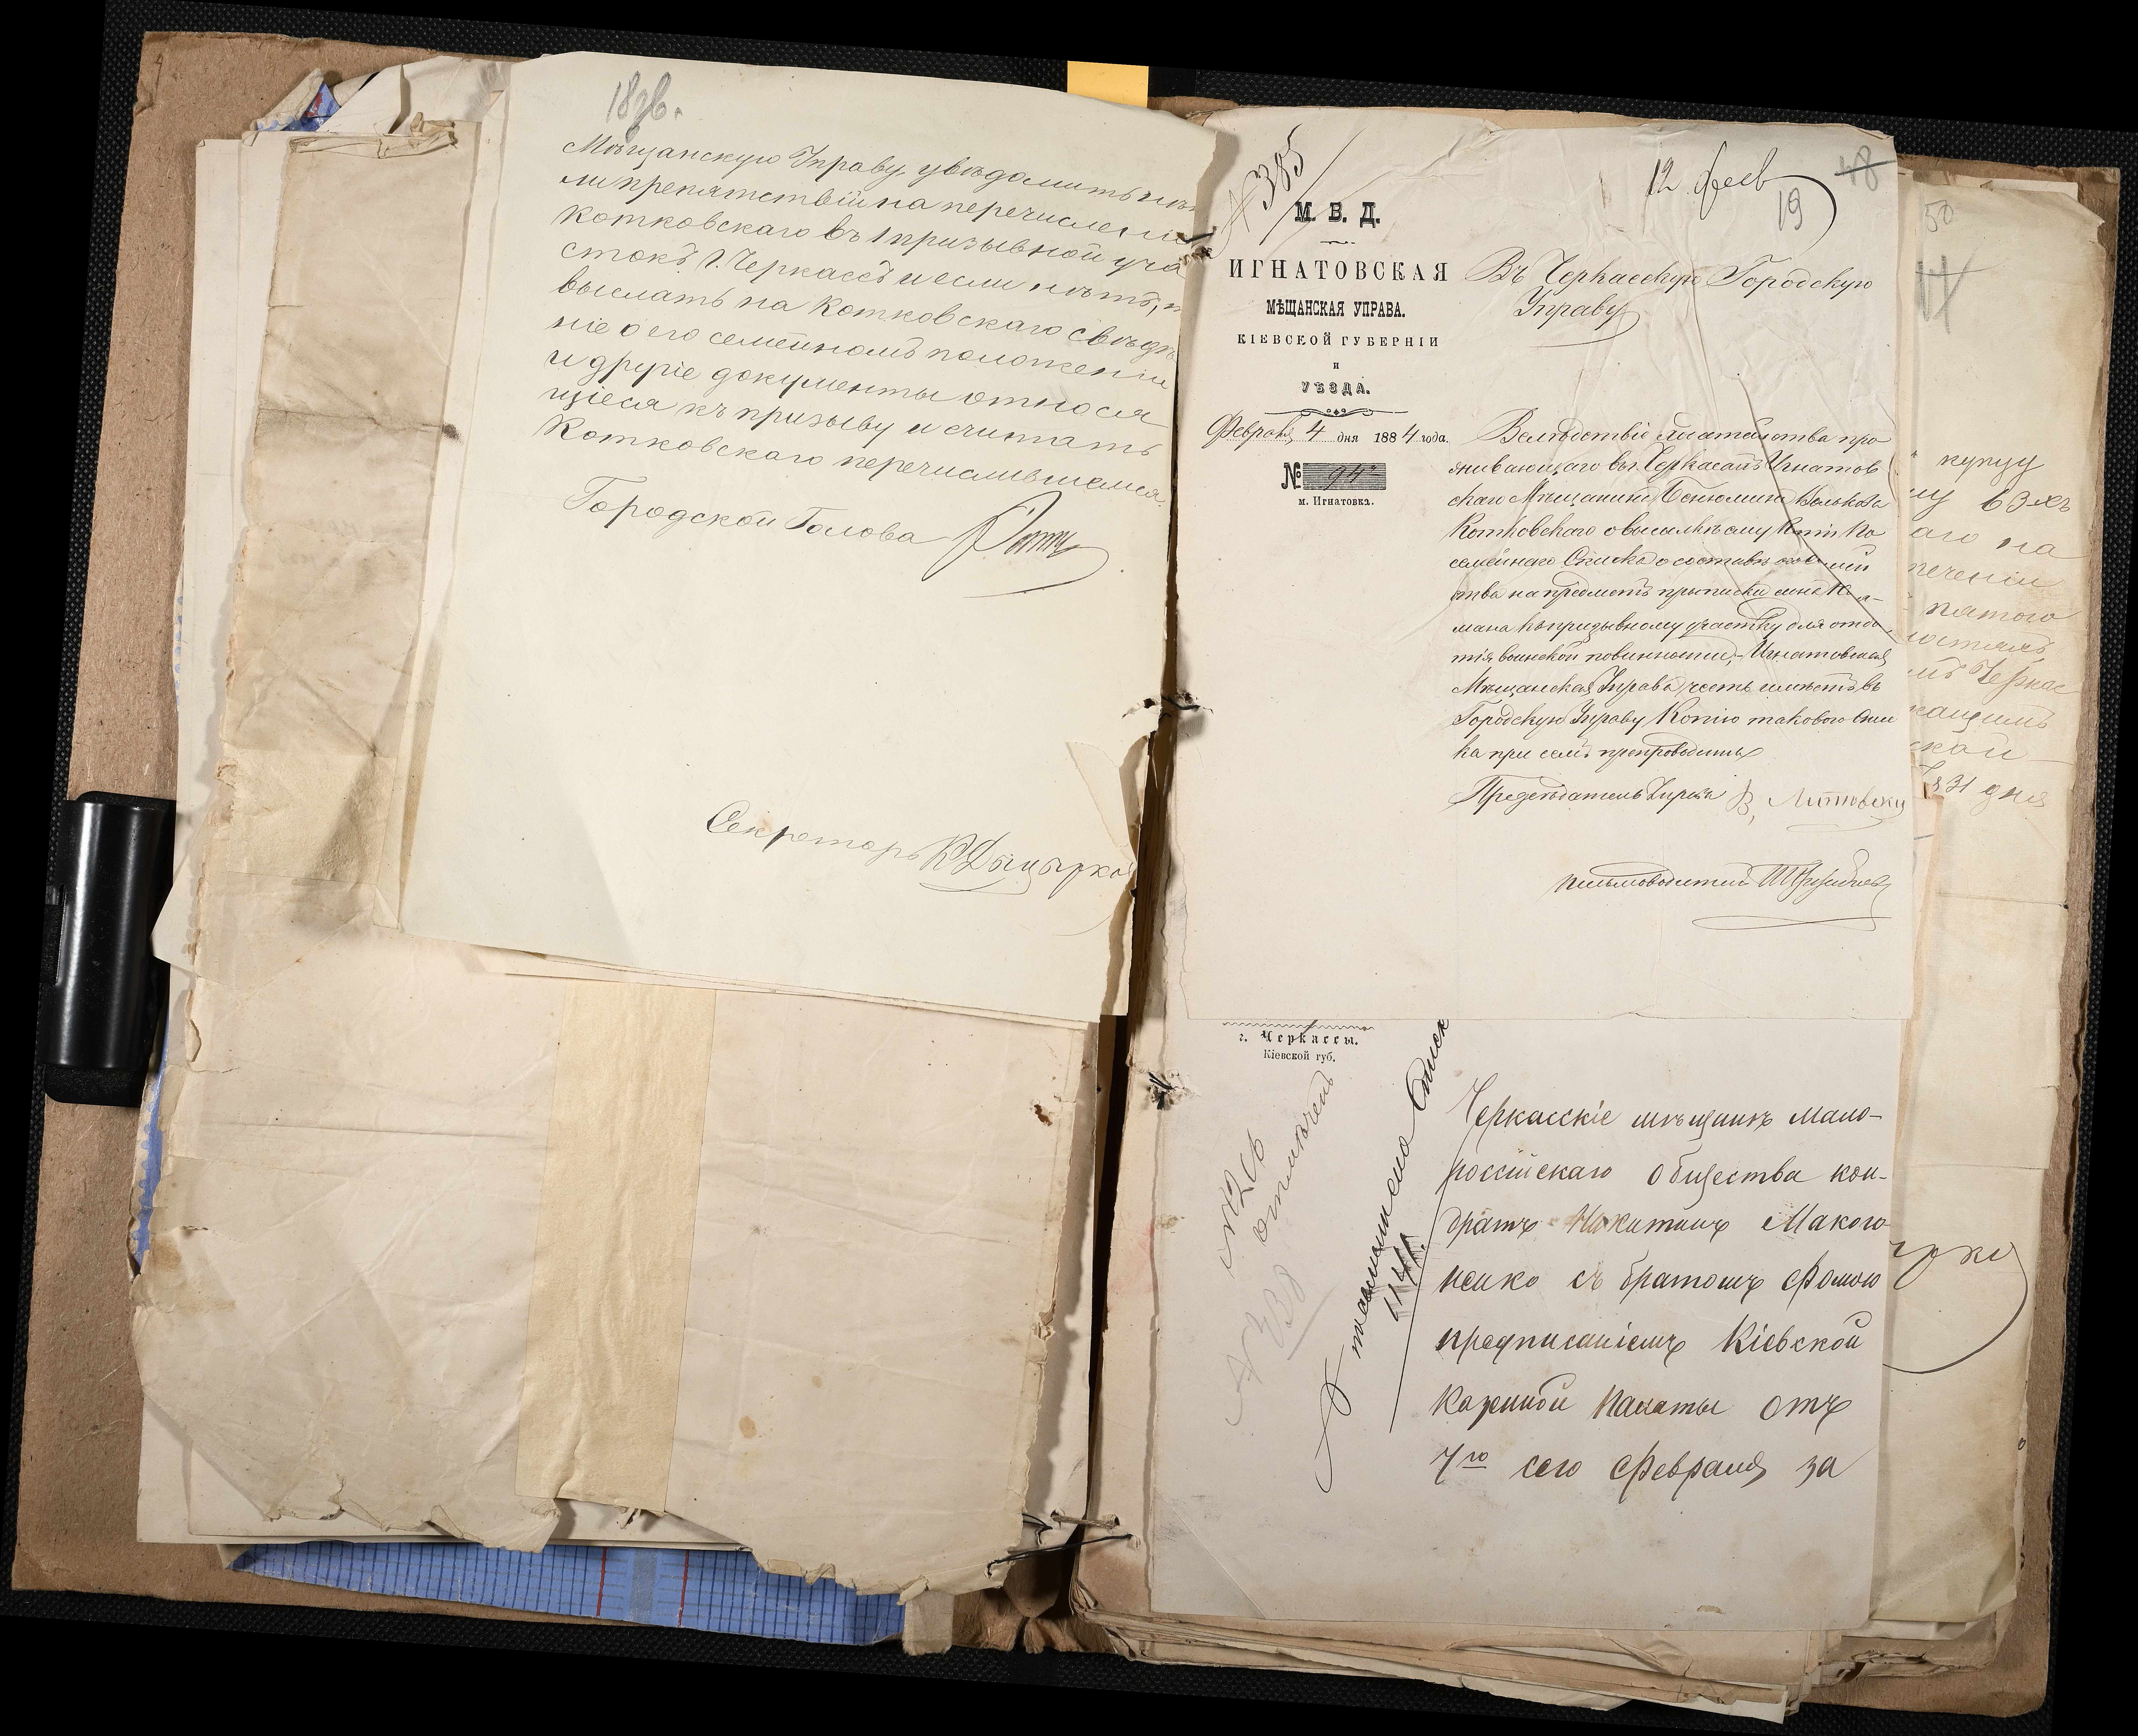 18об.
Мѣщанскую Управу увѣдомить нѣтъ
ли препятствій на перечисленіе
Котковскаго въ 1 призывной уча
стокъ г. Черкассъ и если нѣтъ,
выслать на Котковскаго свѣдѣ
ніе о его семейномъ положеніи
и другіе документы относя
щіеся къ призыву и считать
Котковскаго перечислившимся
Городской Голова
Секретарь
№ 385
12 фев
48
19
М. В. Д.
ИГНАТОВСКАЯ
МѢЩАНСКАЯ УПРАВА.
КІЕВСКОЙ ГУБЕРНІИ
и
УѢЗДА.
Февраля 4 дня 1884 года.
№ 94
м. Игнатовка.
Въ Черкасскую Городскую
Управу
Вслѣдствіе ходатайства про
живающаго въ Черкасахъ Игнатов
скаго Мѣщанина Бенюмина Волькова
Котковскаго о высылкѣ ему копіи По
семейнаго Списка о составѣ его семей
ства на предметъ приписки сына
къ призывному участку для отбы
тія воинской повинности, Игнатовская
Мѣщанская Управа честь имѣетъ въ
Городскую Управу Копію таковаго Спис
ка при семъ препроводить
Предсѣдатель Управы В. Литовскій
Письмоводитель
г. Черкассы.
Кіевской губ.
отмѣченъ
№ 338
Списк
1144.
Черкасскіе мѣщане мало-
россійскаго общества кон-
дратъ Никитинъ Макого
ненко съ братомъ Фомою
предписаніемъ Кіевской
Казенной Палаты отъ
7го сего Февраля за
50
купцу
му 63-хъ
аго на
печеніи
пятого
Черкас
кащимъ
ской
31 дня